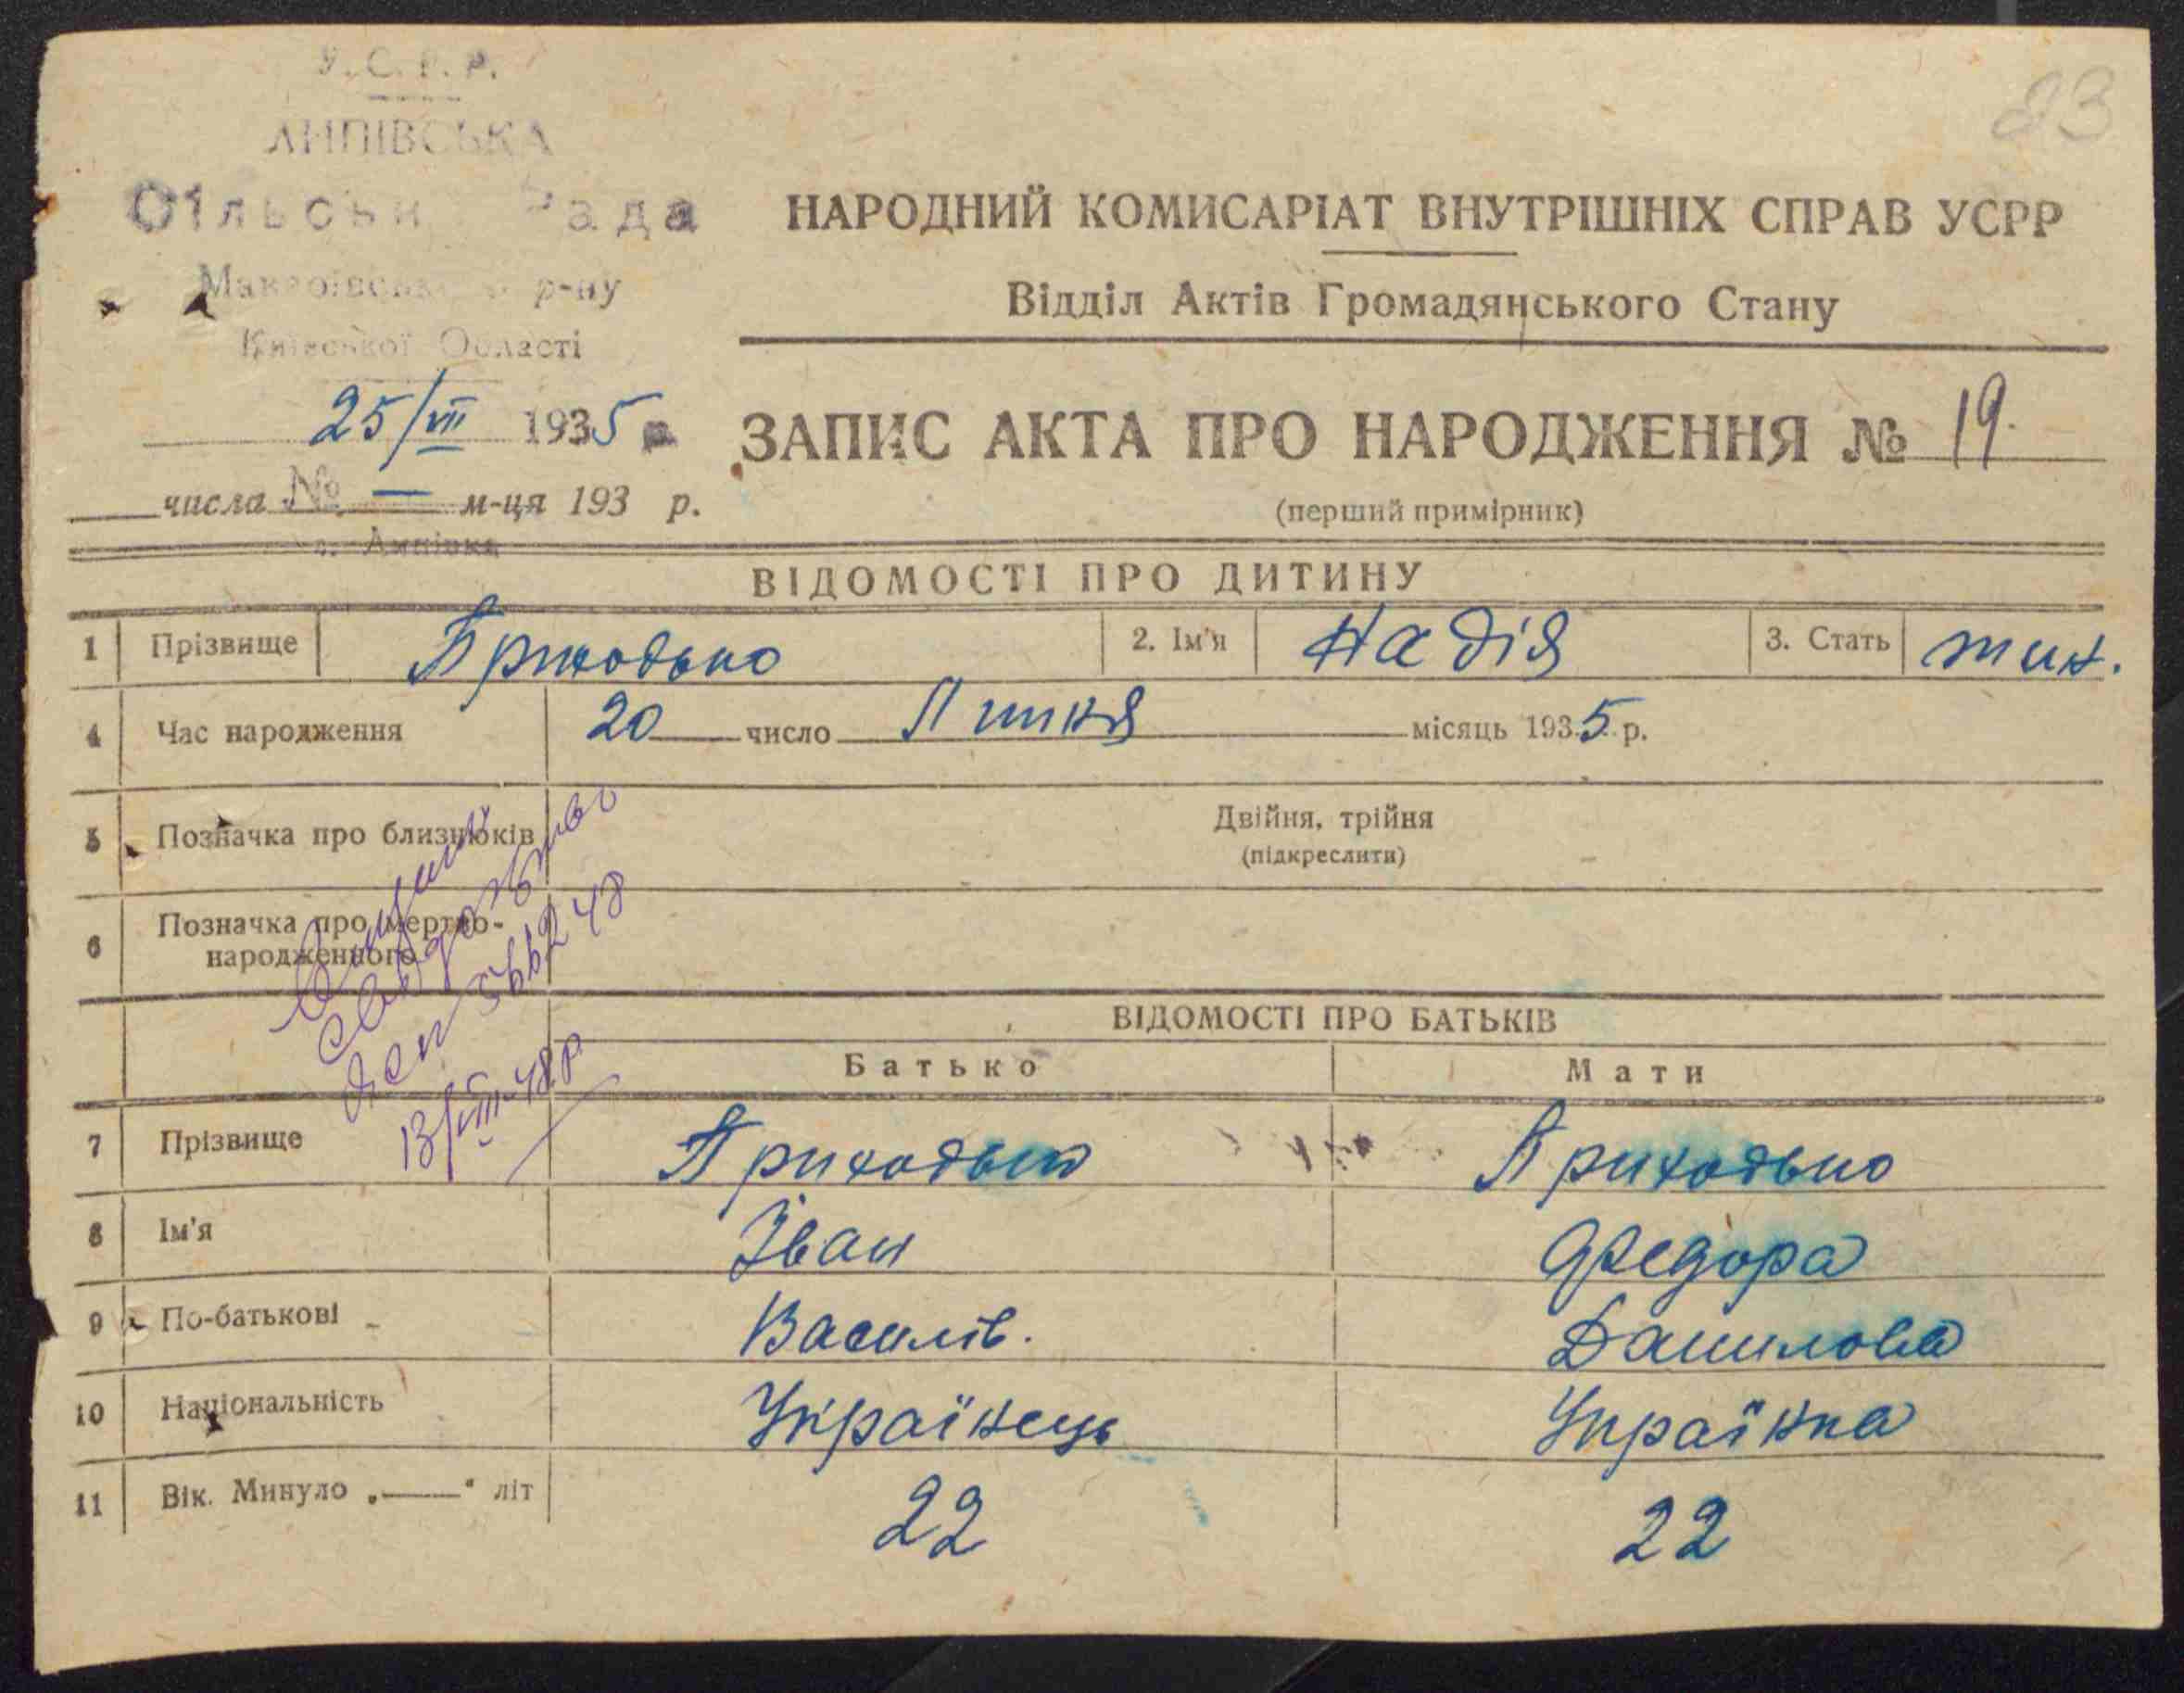 У.С.Р.Р.
ЛИПІВСЬКА
Сільськ Рада
Макарівськ р-ну
Київської Області
25/VII 1935 р.
числа № — м-ця 193 р.
с. Липівка
23
НАРОДНИЙ КОМИСАРІАТ ВНУТРІШНІХ СПРАВ УСРР
Відділ Актів Громадянського Стану
ЗАПИС АКТА ПРО НАРОДЖЕННЯ № 19.
(перший примірник)
ВІДОМОСТІ ПРО ДИТИНУ
1 Прізвище Приходько 2. Ім'я Надія 3. Стать жин.
4 Час народження 20 число Липня місяць 1935 р.
5 Позначка про близнюків Двійня, трійня
(підкреслити)
6 Позначка про мертво-
народженого
свідоцтво
13/VIII-48р.
ВІДОМОСТІ ПРО БАТЬКІВ
Батько Мати
7 Прізвище Приходько Приходько
8 Ім'я Іван Федора
9 По-батькові Василів. Данилова
10 Національність Українець Українка
11 Вік. Минуло „——“ літ 22 22